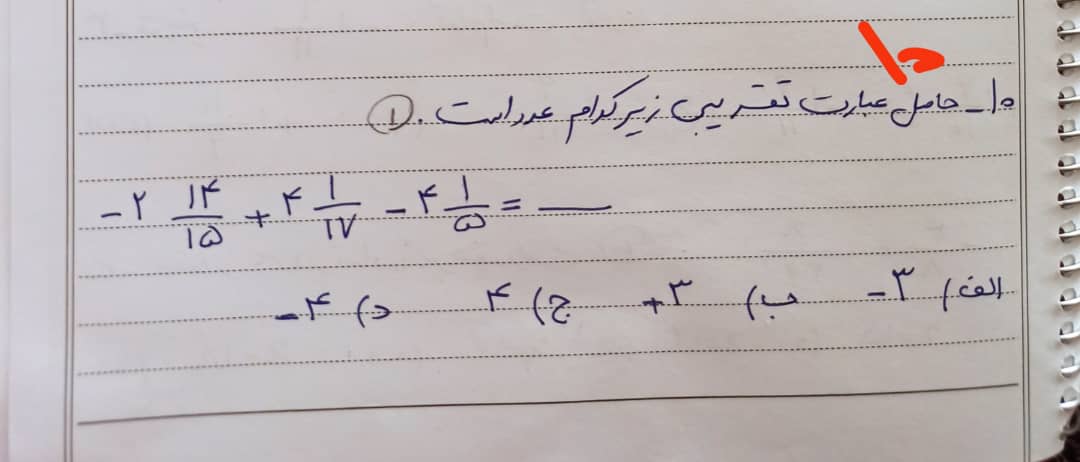 ۱۰_ حاصل عبارت تقریبی زیر کدام عدد است. (۱)
-۲ ۱۴/۱۵ + ۴ ۱/۱۷ - ۴ ۱/۵ = ___
الف) -۳ ب) +۳ ج) ۴ د) -۴